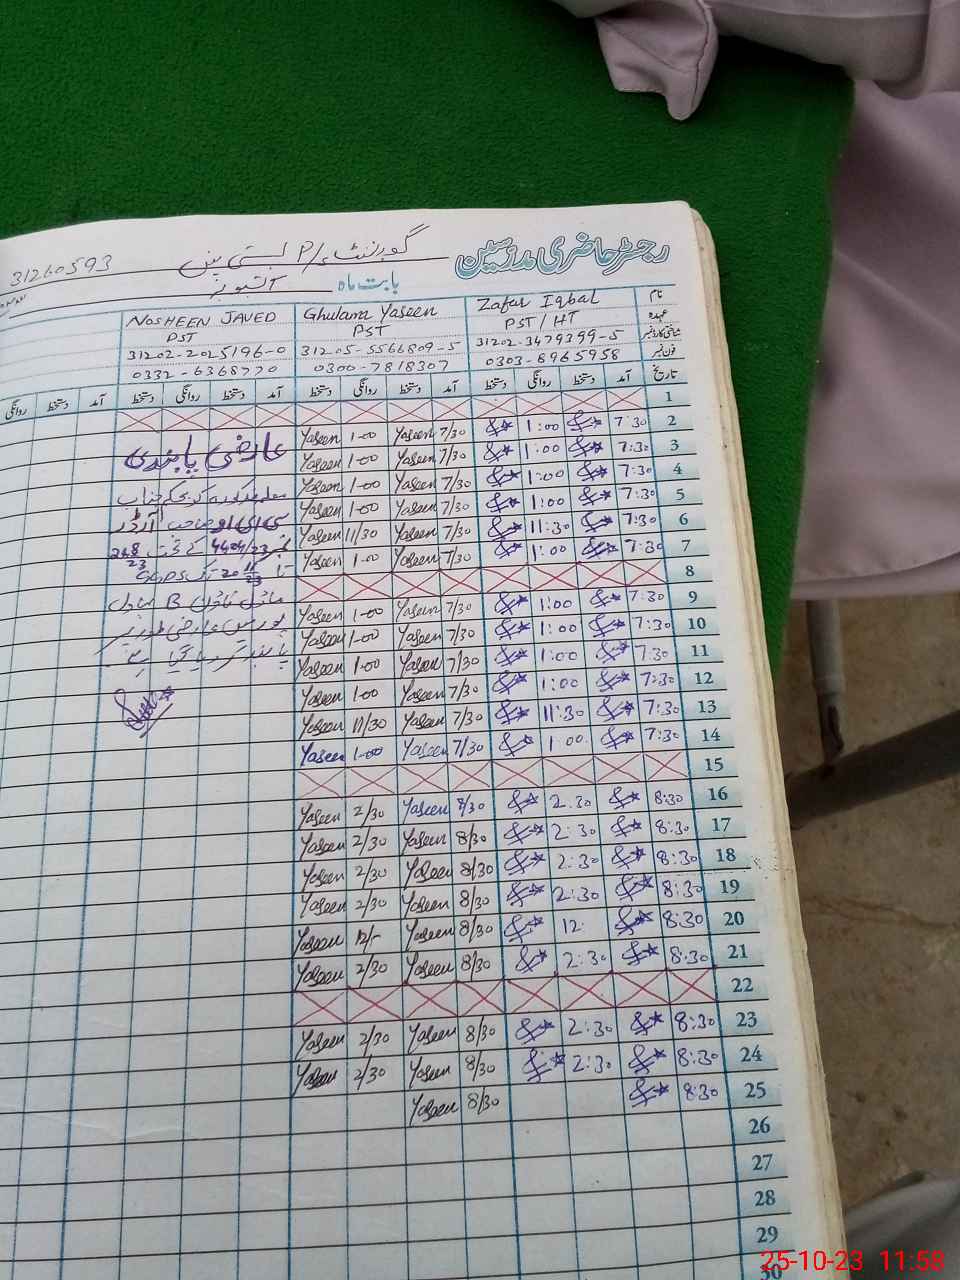 رجسٹر حاضری مدرسین
گورنمنٹ P/ بستی
31260593
بابت ماہ اکتوبر
نام Zafar Iqbal Ghulam Yaseen NOSHEEN JAVED
عہدہ PST/HT PST PST
شناختی کارڈ نمبر 31202-3479399-5 31205-5566809-5 31202-2025196-0
فون نمبر 0303-6965958 0300-7818307 0332-6368770
تاریخ آمد دستخط روانگی دستخط آمد دستخط روانگی دستخط آمد دستخط روانگی دستخط آمد دستخط روانگی
1
2 7:30 1:00 7/30 Yaseen 1-00 Yaseen
3 7:30 1:00 7/30 Yaseen 1-00 Yaseen
4 7:30 1:00 7/30 Yaseen 1-00 Yaseen
5 7:30 1:00 7/30 Yaseen 1-00 Yaseen
6 7:30 11:30 7/30 Yaseen 11/30 Yaseen
7 7:30 1:00 7/30 Yaseen 1-00 Yaseen
8
9 7:30 1:00 7/30 Yaseen 1-00 Yaseen
10 7:30 1:00 7/30 Yaseen 1-00 Yaseen
11 7:30 1:00 7/30 Yaseen 1-00 Yaseen
12 7:30 1:00 7/30 Yaseen 1-00 Yaseen
13 7:30 11:30 7/30 Yaseen 11/30 Yaseen
14 7:30 1:00 7/30 Yaseen 1-00 Yaseen
15
16 8:30 2:30 8/30 Yaseen 2/30 Yaseen
17 8:30 2:30 8/30 Yaseen 2/30 Yaseen
18 8:30 2:30 8/30 Yaseen 2/30 Yaseen
19 8:30 2:30 8/30 Yaseen 2/30 Yaseen
20 8:30 12 8/30 Yaseen 12/- Yaseen
21 8:30 2:30 8/30 Yaseen 2/30 Yaseen
22
23 8:30 2:30 8/30 Yaseen 2/30 Yaseen
24 8:30 2:30 8/30 Yaseen 2/30 Yaseen
25 8:30 8/30 Yaseen
26
27
28
29
30
عارضی پابندی
معلمہ مذکورہ کو بحکم جناب
سی ای او صاحب آرڈر
نمبر 4404/23 کے تحت
تا 20 تک GGPS
ماڈل ٹاؤن B بہاول
پور میں عارضی طور پر
پابند کر دیا گیا ہے
25-10-23 11:58